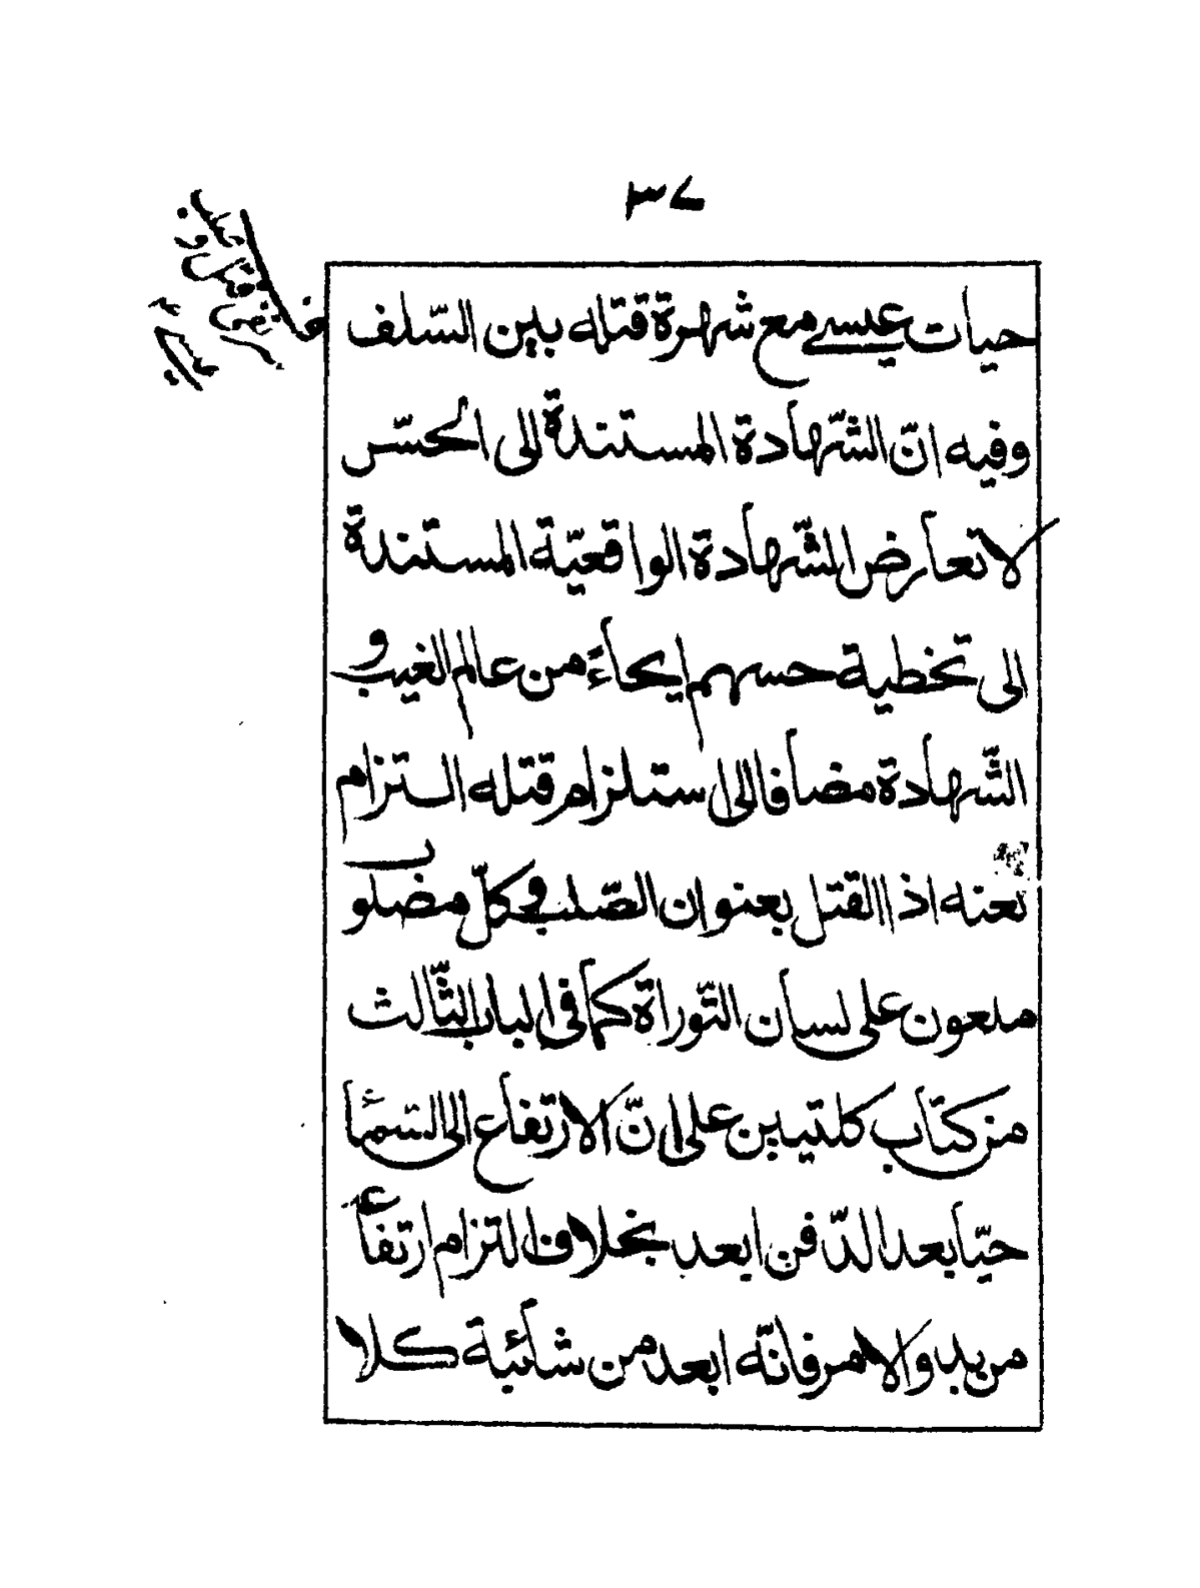 ٣٧
حيات عيسے مع شهرة قتله بين السّلف
وفيه انّ الشّهادة المستندة الى الحسّس
لا تعارض الشّهادة الواقعيّة المستندة
الى تخطية حسهم ايحاءً من عالم الغيب و
الشّهادة مضافا الى استلزام قتله التزام
لعنه اذ القتل بعنوان الصّلب وكلّ مصلوب
ملعون على لسان التّوراة كما فى الباب الثّالث
من كتاب كلتيين على انّ الارتفاع الى السّماء
حيّا بعد الدّفن ابعد بخلاف التزام ارتفاع
من بدو الامر فانّه ابعد من شائبة كلا